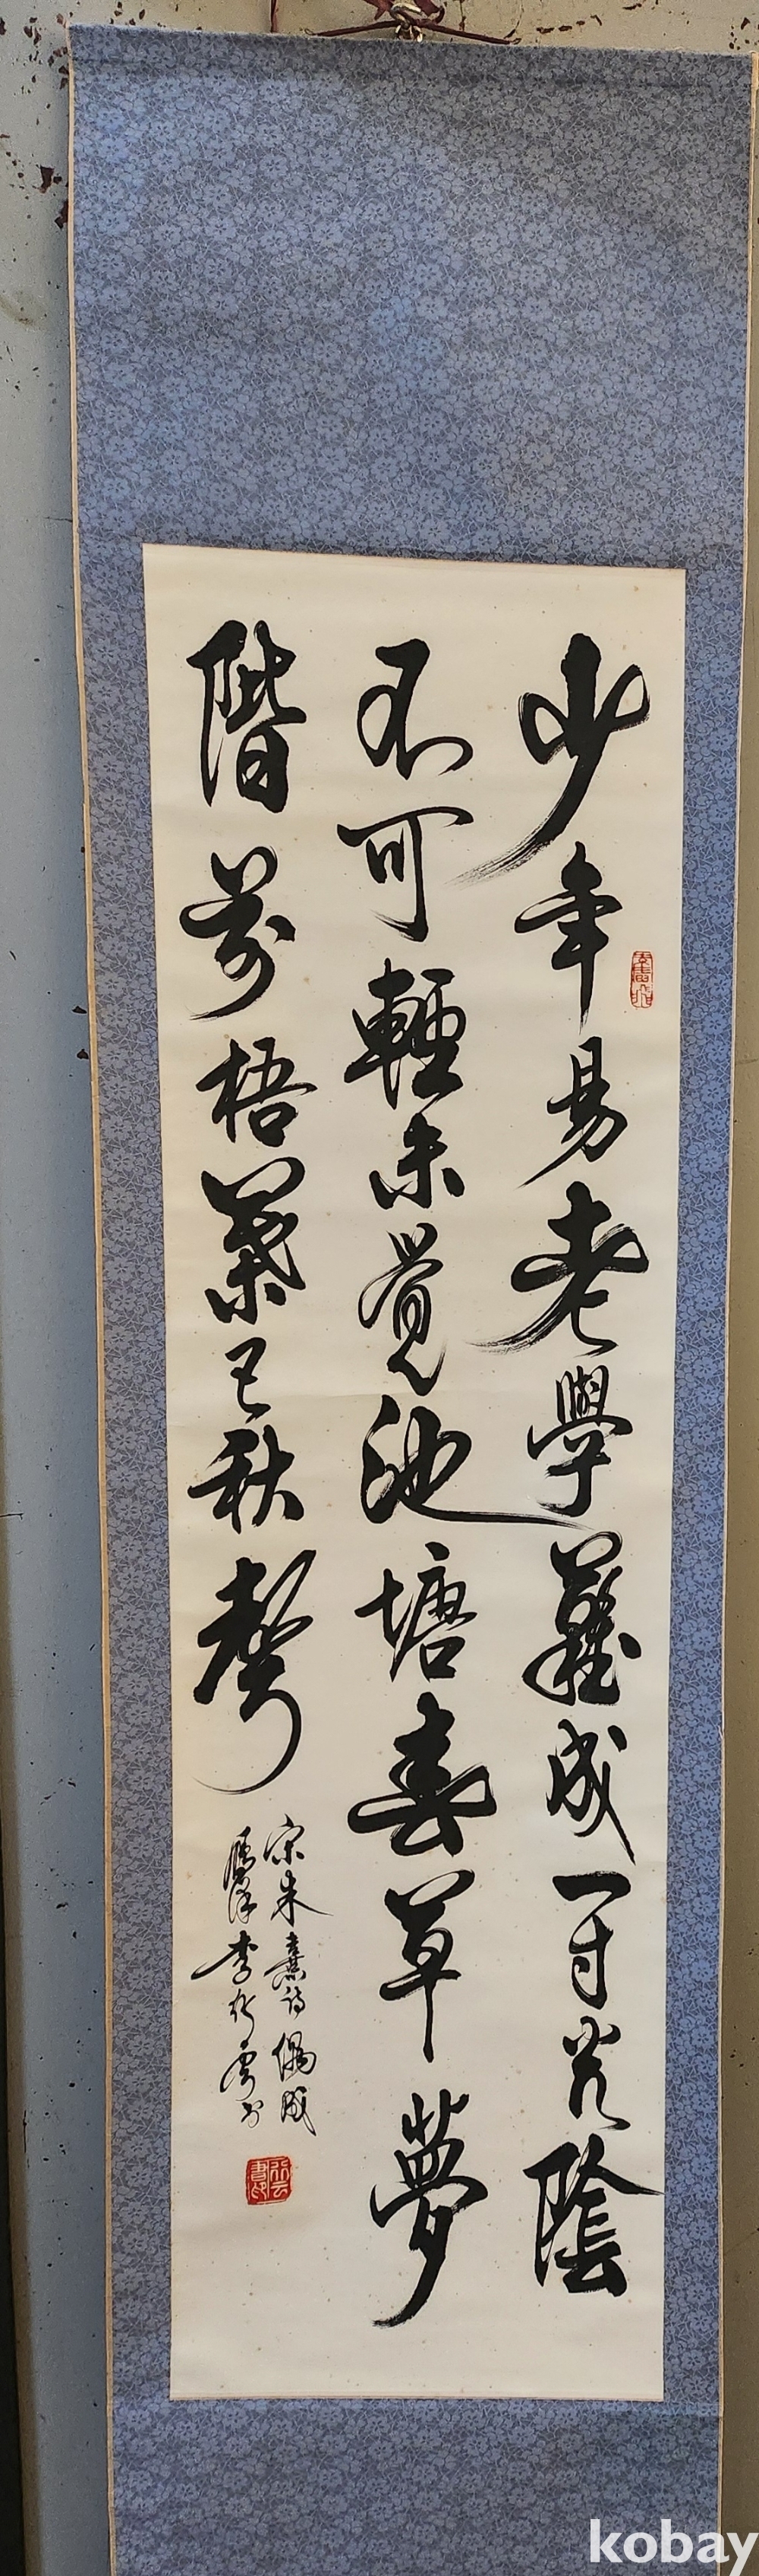 少年易老學難成一寸光陰
不可輕未覺池塘春草夢
階前梧葉已秋聲
宋朱熹诗偶成
李行雲书
行云書印
kobay